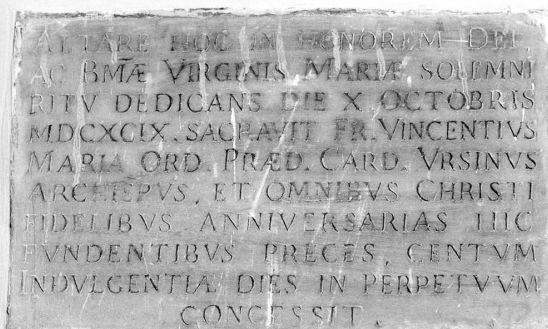 ALTARE HOC IN HONOREM DEI,
AC BMÆ VIRGINIS MARIÆ SOLEMNI
RITV DEDICANS DIE X OCTOBRIS
MDCXCIX. SACRAVIT FR. VINCENTIVS
MARIA ORD. PRÆD. CARD. VRSINVS
ARCHIEPUS, ET OMNIBUS CHRISTI
FIDELIBVS ANNIVERSARIAS HIC
FUNDENTIBVS PRECES, CENTVM
INDVLGENTIÆ DIES IN PERPETVVM
CONCESSIT.